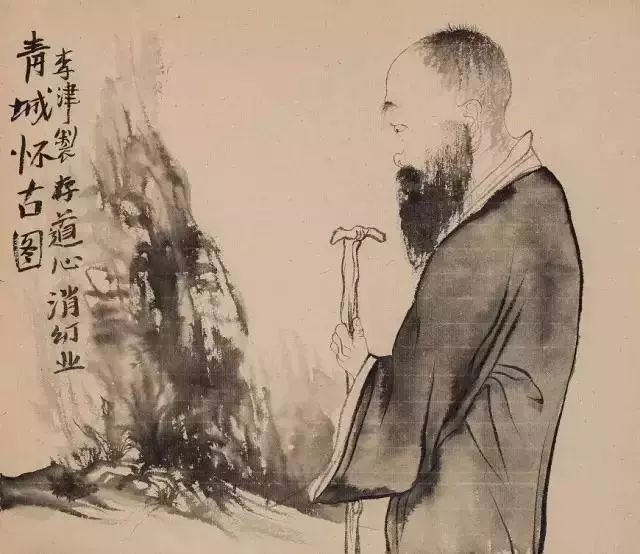 青城怀古图
李津製 存道心 消幻业